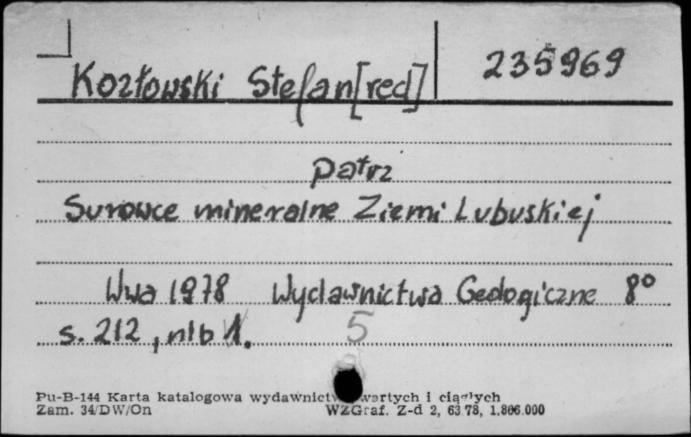 Kozłowski Stefan [red] 235969
patrz
Surowce mineralne Ziemi Lubuskiej
Wwa 1978 Wydawnictwa Geologiczne 8°
s. 212, nlb 1.
5
Pu-B-144 Karta katalogowa wydawnictw zwartych i ciągłych
Zam. 34/DW/On WZGraf. Z-d 2, 63 78, 1.866.000